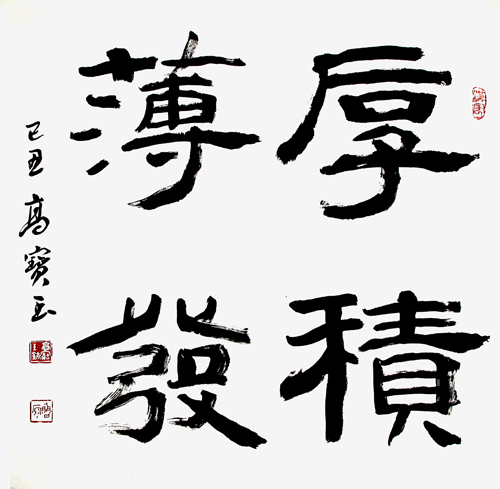 厚積
薄發
己丑 高寶玉